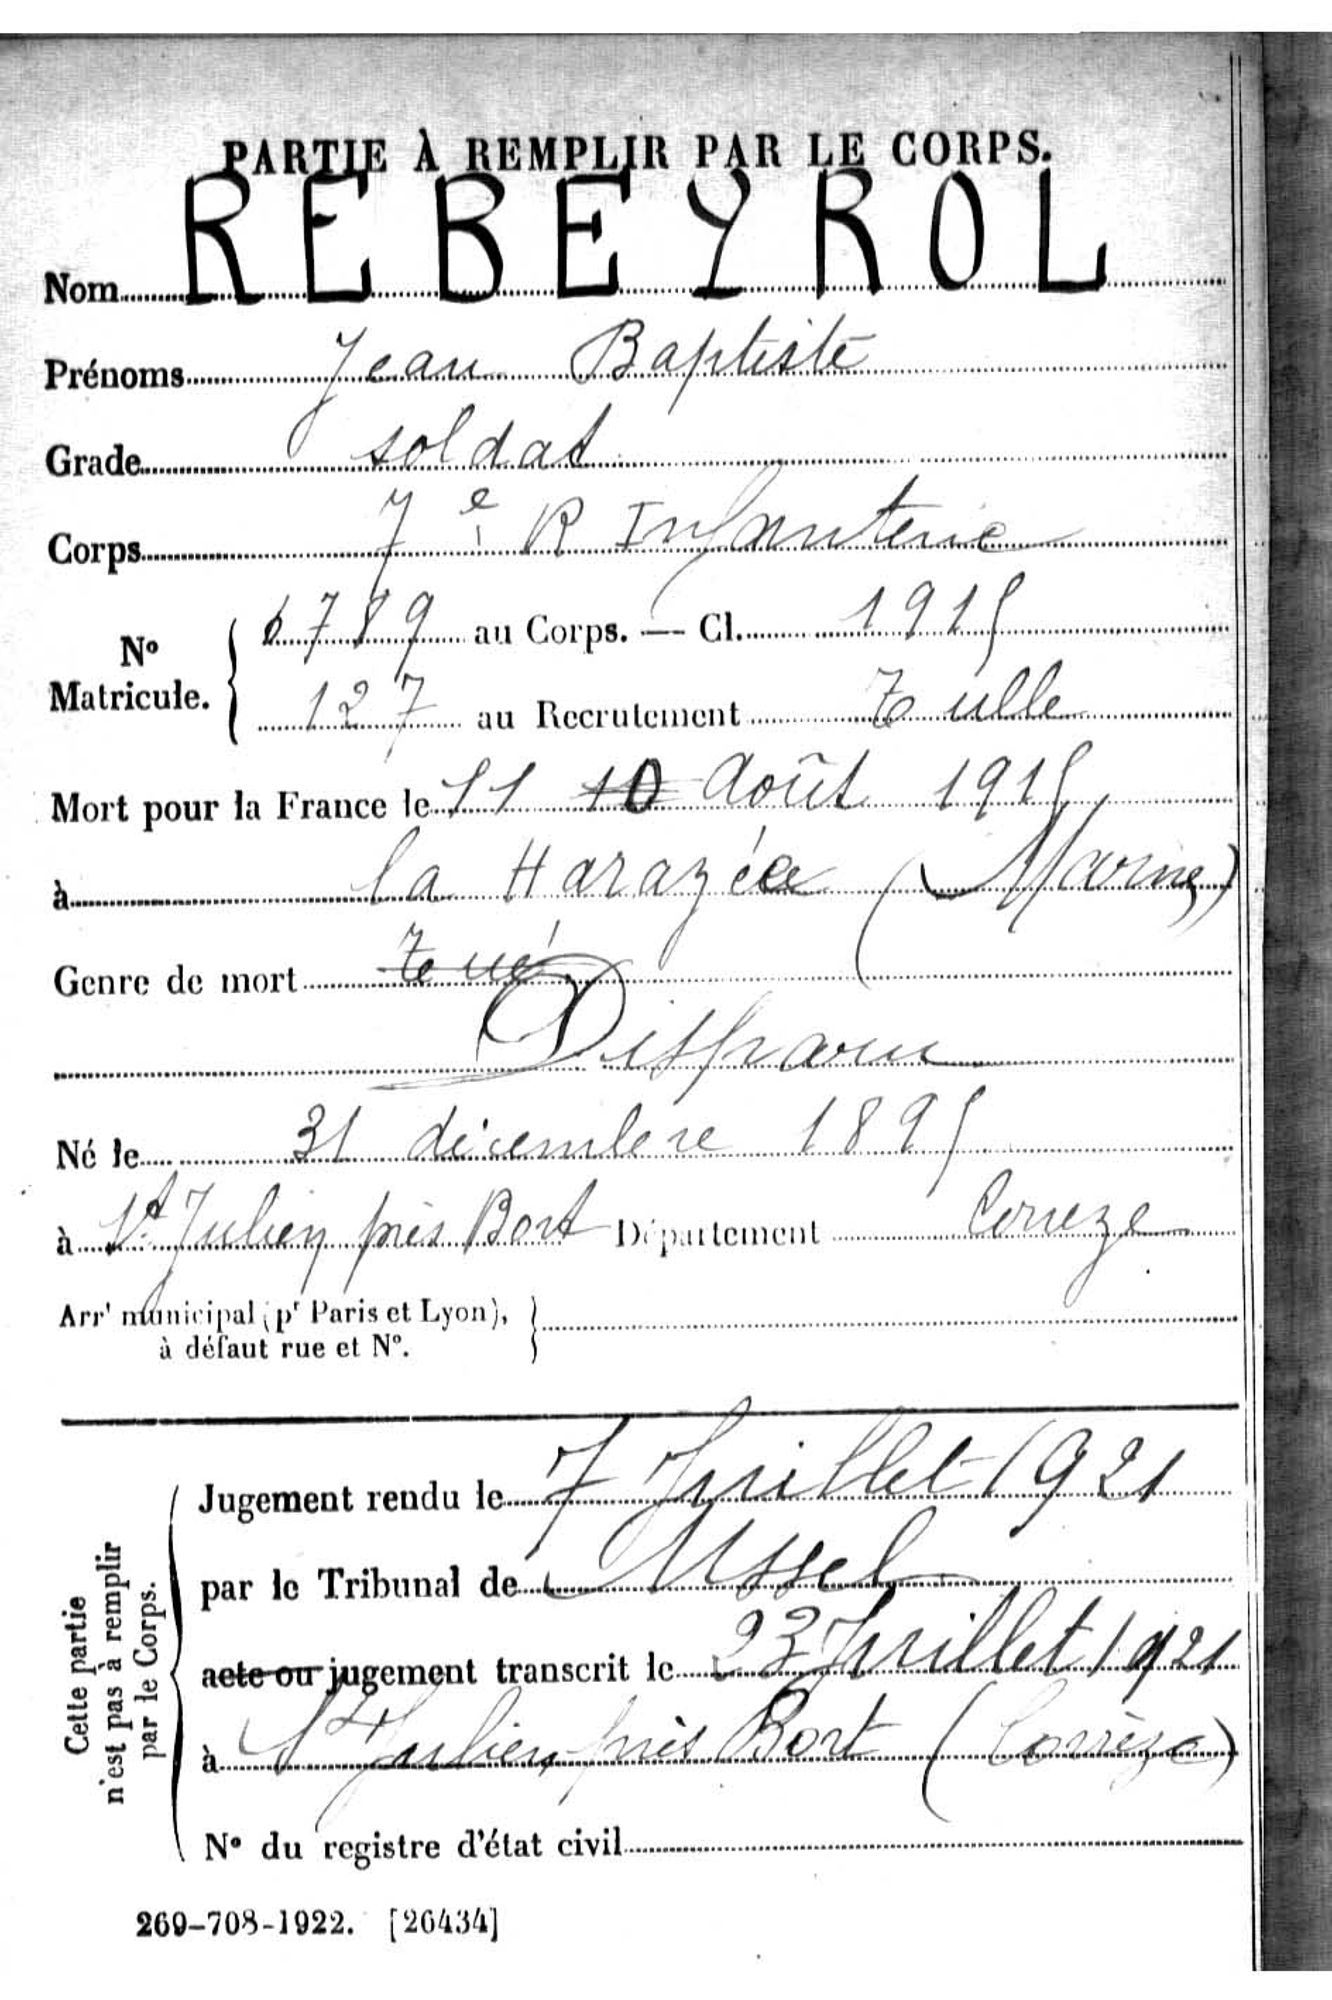 PARTIE À REMPLIR PAR LE CORPS.
Nom REBEYROL
Prénoms Jean Baptiste
Grade soldat
Corps 7e R Infanterie
No Maticule. 6789 au Corps. — Cl. 1915
127 au Recrutement Tulle
Mort pour la France le 11 10 Août 1915
à la Harazée (Marne)
Genre de mort tué
Disparu
Né le 31 décembre 1895
à St Julien près Bort Département Corrèze
Arrt municipal (pr Paris et Lyon),
à défaut rue et No.
Cette partie
n'est pas à remplir
par le Corps.
Jugement rendu le 7 Juillet 1921
par le Tribunal de Ussel
acte ou jugement transcrit le 23 Juillet 1921
à St Julien près Bort (Corrèze)
No du registre d'état civil
269-708-1922. [26434]